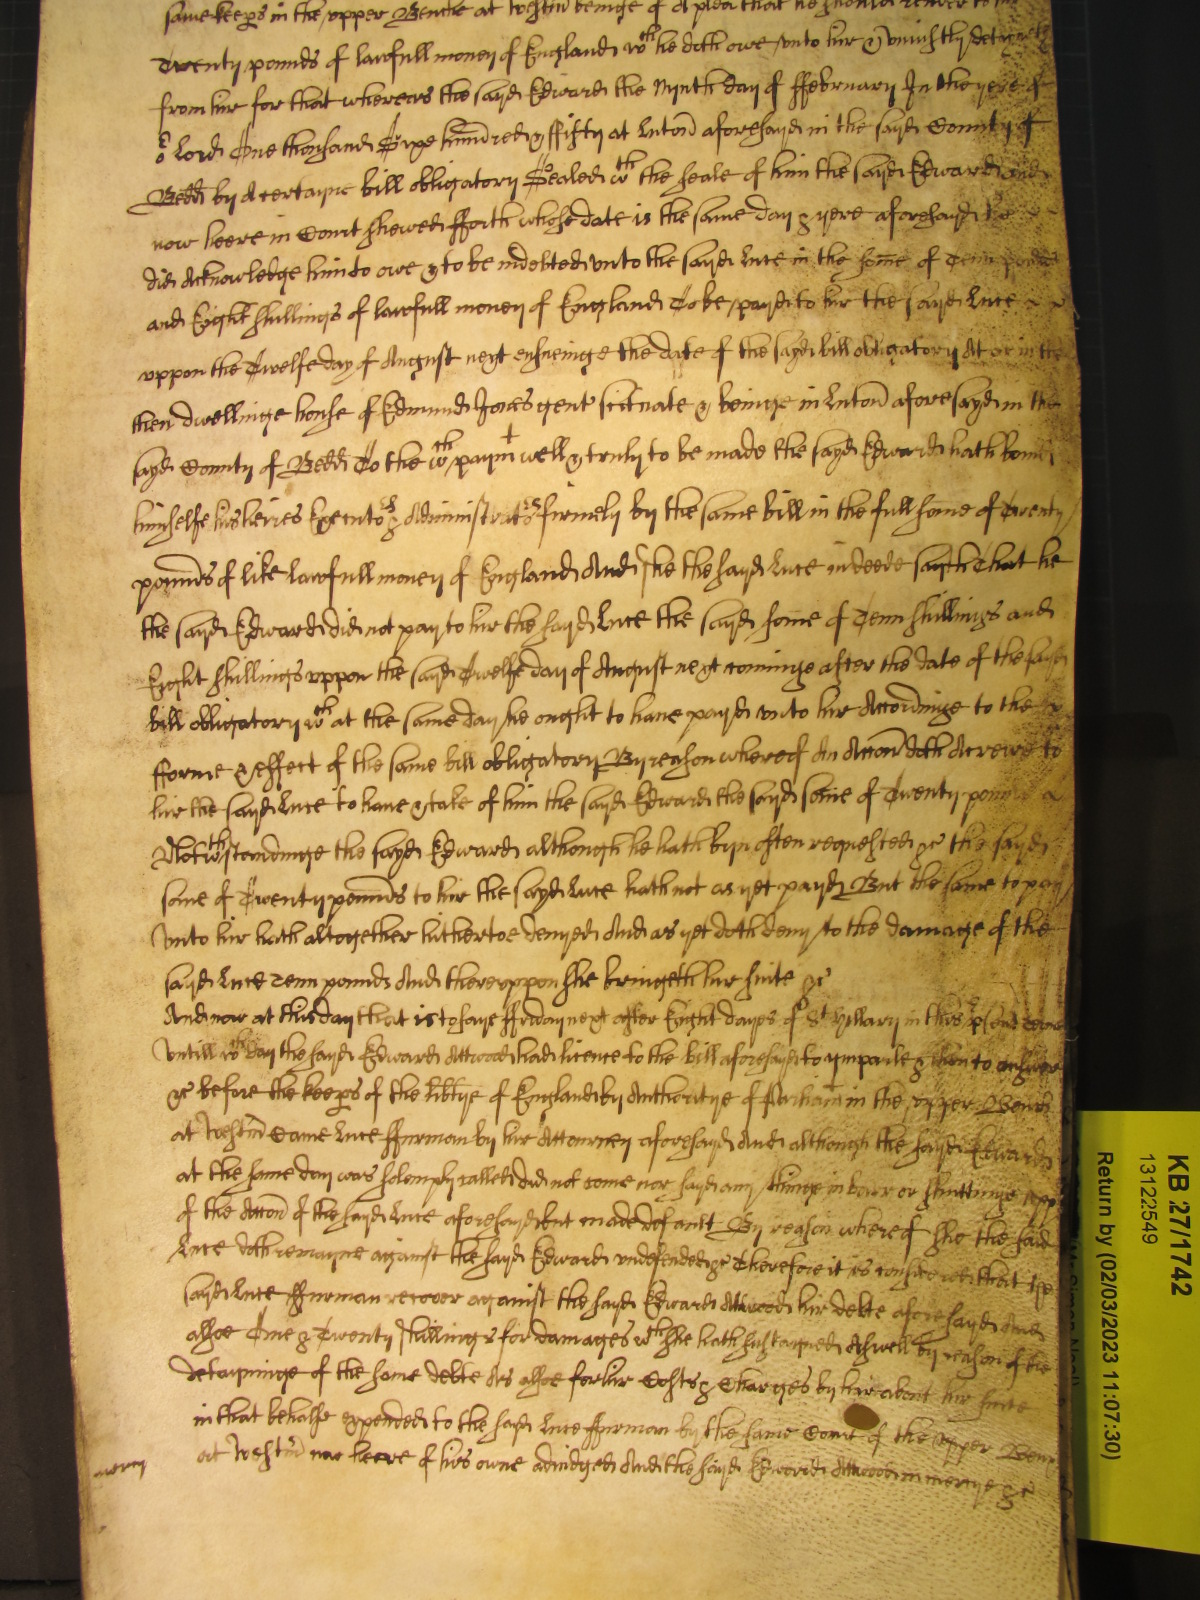 same keeps in the upper Benche at Westm beinge of A plea that he should render to
Twenty pounds of lawfull money of England wch he doth owe unto hir & uniustly
from hir for that whereas the sayd Edward the Nynth day of ffebruary In the yere of
or Lord One thousand Sixe hundred & ffifty at Luton aforesayd in the sayd County of
Bedd by A certayne bill obligatory Sealed wth the seale of him the sayd Edward and
now heere in Court shewed fforth whose date is the same day & yere aforesayd
did Acknowledge him to owe & to be indebted unto the sayd Luce in the some of Tenn pounds
and Eight shillings of lawfull money of England To be payd to hir the sayd Luce
uppon the Twelfe day of August next ensueinge the date of the sayd bill obligatory At or in the
then dwellinge house of Edmund Jones gent scituate & beinge in Luton aforesayd in the
sayd County of Bedd To the wch paymt well & truly to be made the sayd Edward hath bound
himselfe his heires Executors & Administrators firmely by the same bill in the full some of Twenty
pounds of like lawfull money of England And she the sayd Luce in deede sayth That he
the sayd Edward did not pay to hir the sayd Luce the sayd some of Tenn shillings and
Eight shillings uppon the sayd Twelfe day of August next cominge after the date of the sayd
bill obligatory wch at the same day he ought to have payd unto hir Accordinge to the
fforme & effect of the same bill obligatory By reason whereof An Accon doth Accrewe to
hir the sayd Luce to have & take of him the sayd Edward the sayd some of Twenty pounds
Notwthstandinge the sayd Edward although he hath byn often requested &c the sayd
some of Twenty pounds to hir the sayd Luce hath not as yet payd But the same to pay
unto hir hath altogether hithertoe denyed And as yet doth deny to the damage of the
sayd Luce Tenn pounds And thereuppon she bringeth hir suite &c
And now at this day that is to saye ffryday next after Eight dayes of St Hillary in this psent
untill wch day the sayd Edward Attwood had licence to the bill aforesayd to imparle & then to answer
&c before the keeps of the libtye of England by Authoritye of Parliamt in the upper Bench
at Westm Came Luce ffurman by hir Attourney aforesayd And although the sayd Edward
at the same day was solemply called did not come nor sayd any thinge in barr or
of the Accon of the sayd Luce aforesayd but made default By reason whereof she the said
Luce doth remayne against the sayd Edward undefended &c Therefore it is considered that the
sayd Luce ffurman recover against the sayd Edward Attwood hir debte aforesayd And
alsoe One & Twenty shillings for damages wch she hath sustayned Aswell by reason of the
detayninge of the same debte As alsoe for hir Costs & Charges by hir about hir suite
in that behalfe expended to the sayd Luce ffurman by the same Court of the upper Bench
at Westm now heere of hir owne adiudged And the sayd Edward Attwood in mercye &c
mercy
KB 27/1742
13122549
Return by (02/03/2023 11:07:30)